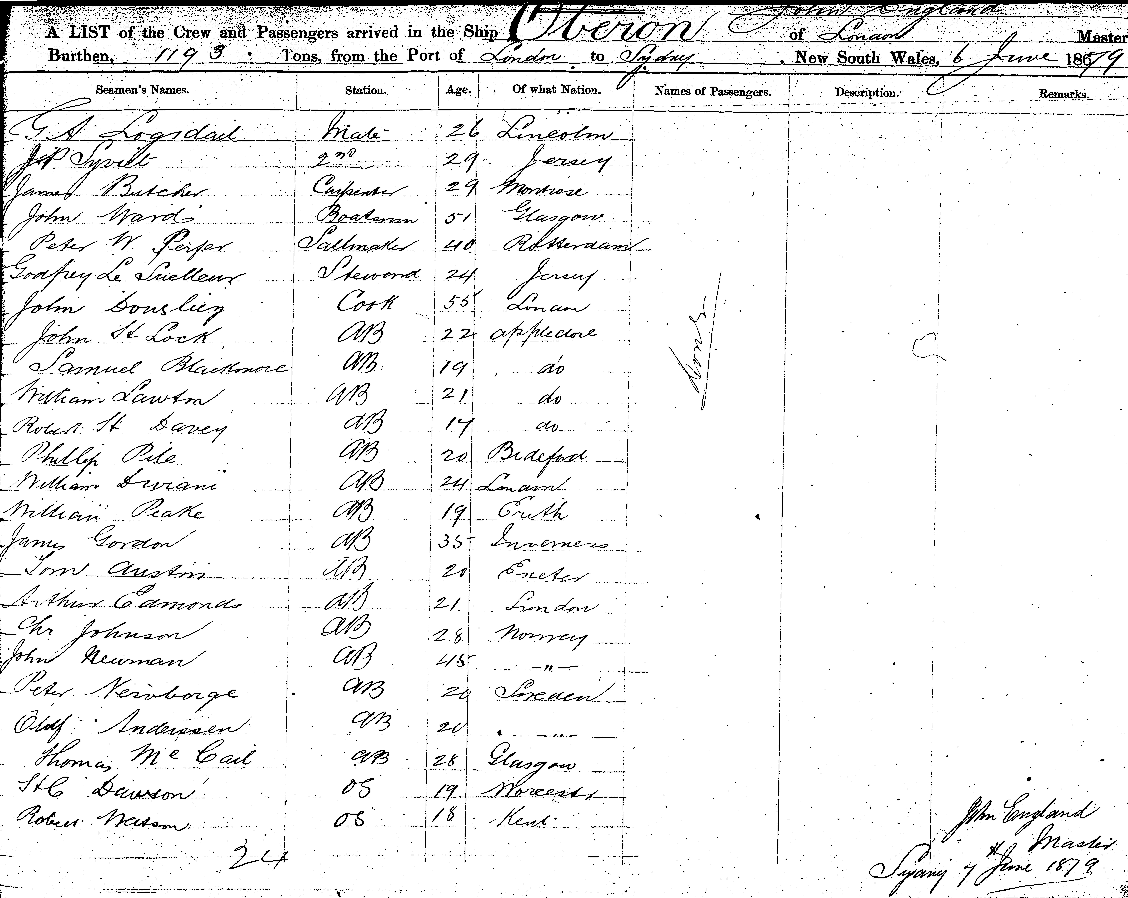 John England
A LIST of the Crew and Passengers arrived in the Ship Oberon of London Master
Burthen, 1193 Tons, from the Port of London to Sydney New South Wales, 6 June 1879
Seamen's Names. Station. Age. Of what Nation. Names of Passengers. Description. Remarks.
G A Logsdail Mate 26 Lincoln
2nd 29 Jersey
James Butcher Carpenter 29 Montrose
John Ward 51 Glasgow
Peter W. Sailmaker 40 Rotterdam
Godfrey Le Steward 24 Jersey
John Cook 55 London
John H Lock AB 22 appledore
Samuel Blackmore AB 19 do
William Lawton AB 21 do
Robert H Davey AB do
Phillip Pile AB 20 Bideford
William AB 24 London
William Peake AB 19 Erith
James Gordon AB 35 Inverness
Tom Austin AB 20 Exeter
Arthur Edmonds AB 21 London
Chr Johnson AB 28 Norway
John Newman AB 45 -"-
Peter AB Sweden
Anderssen AB -"-
Thomas Mc Cail AB 28 Glasgow
Dawson OS 19 Worcester
Robert Watson OS 18 Kent
24
John England
Master
Sydney 7 June 1879